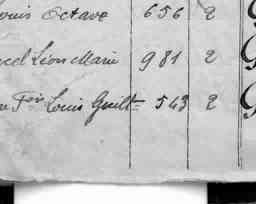 Louis Octave 656 2
cel Léon Marie 981 2
Fois Louis Guilt 543 2